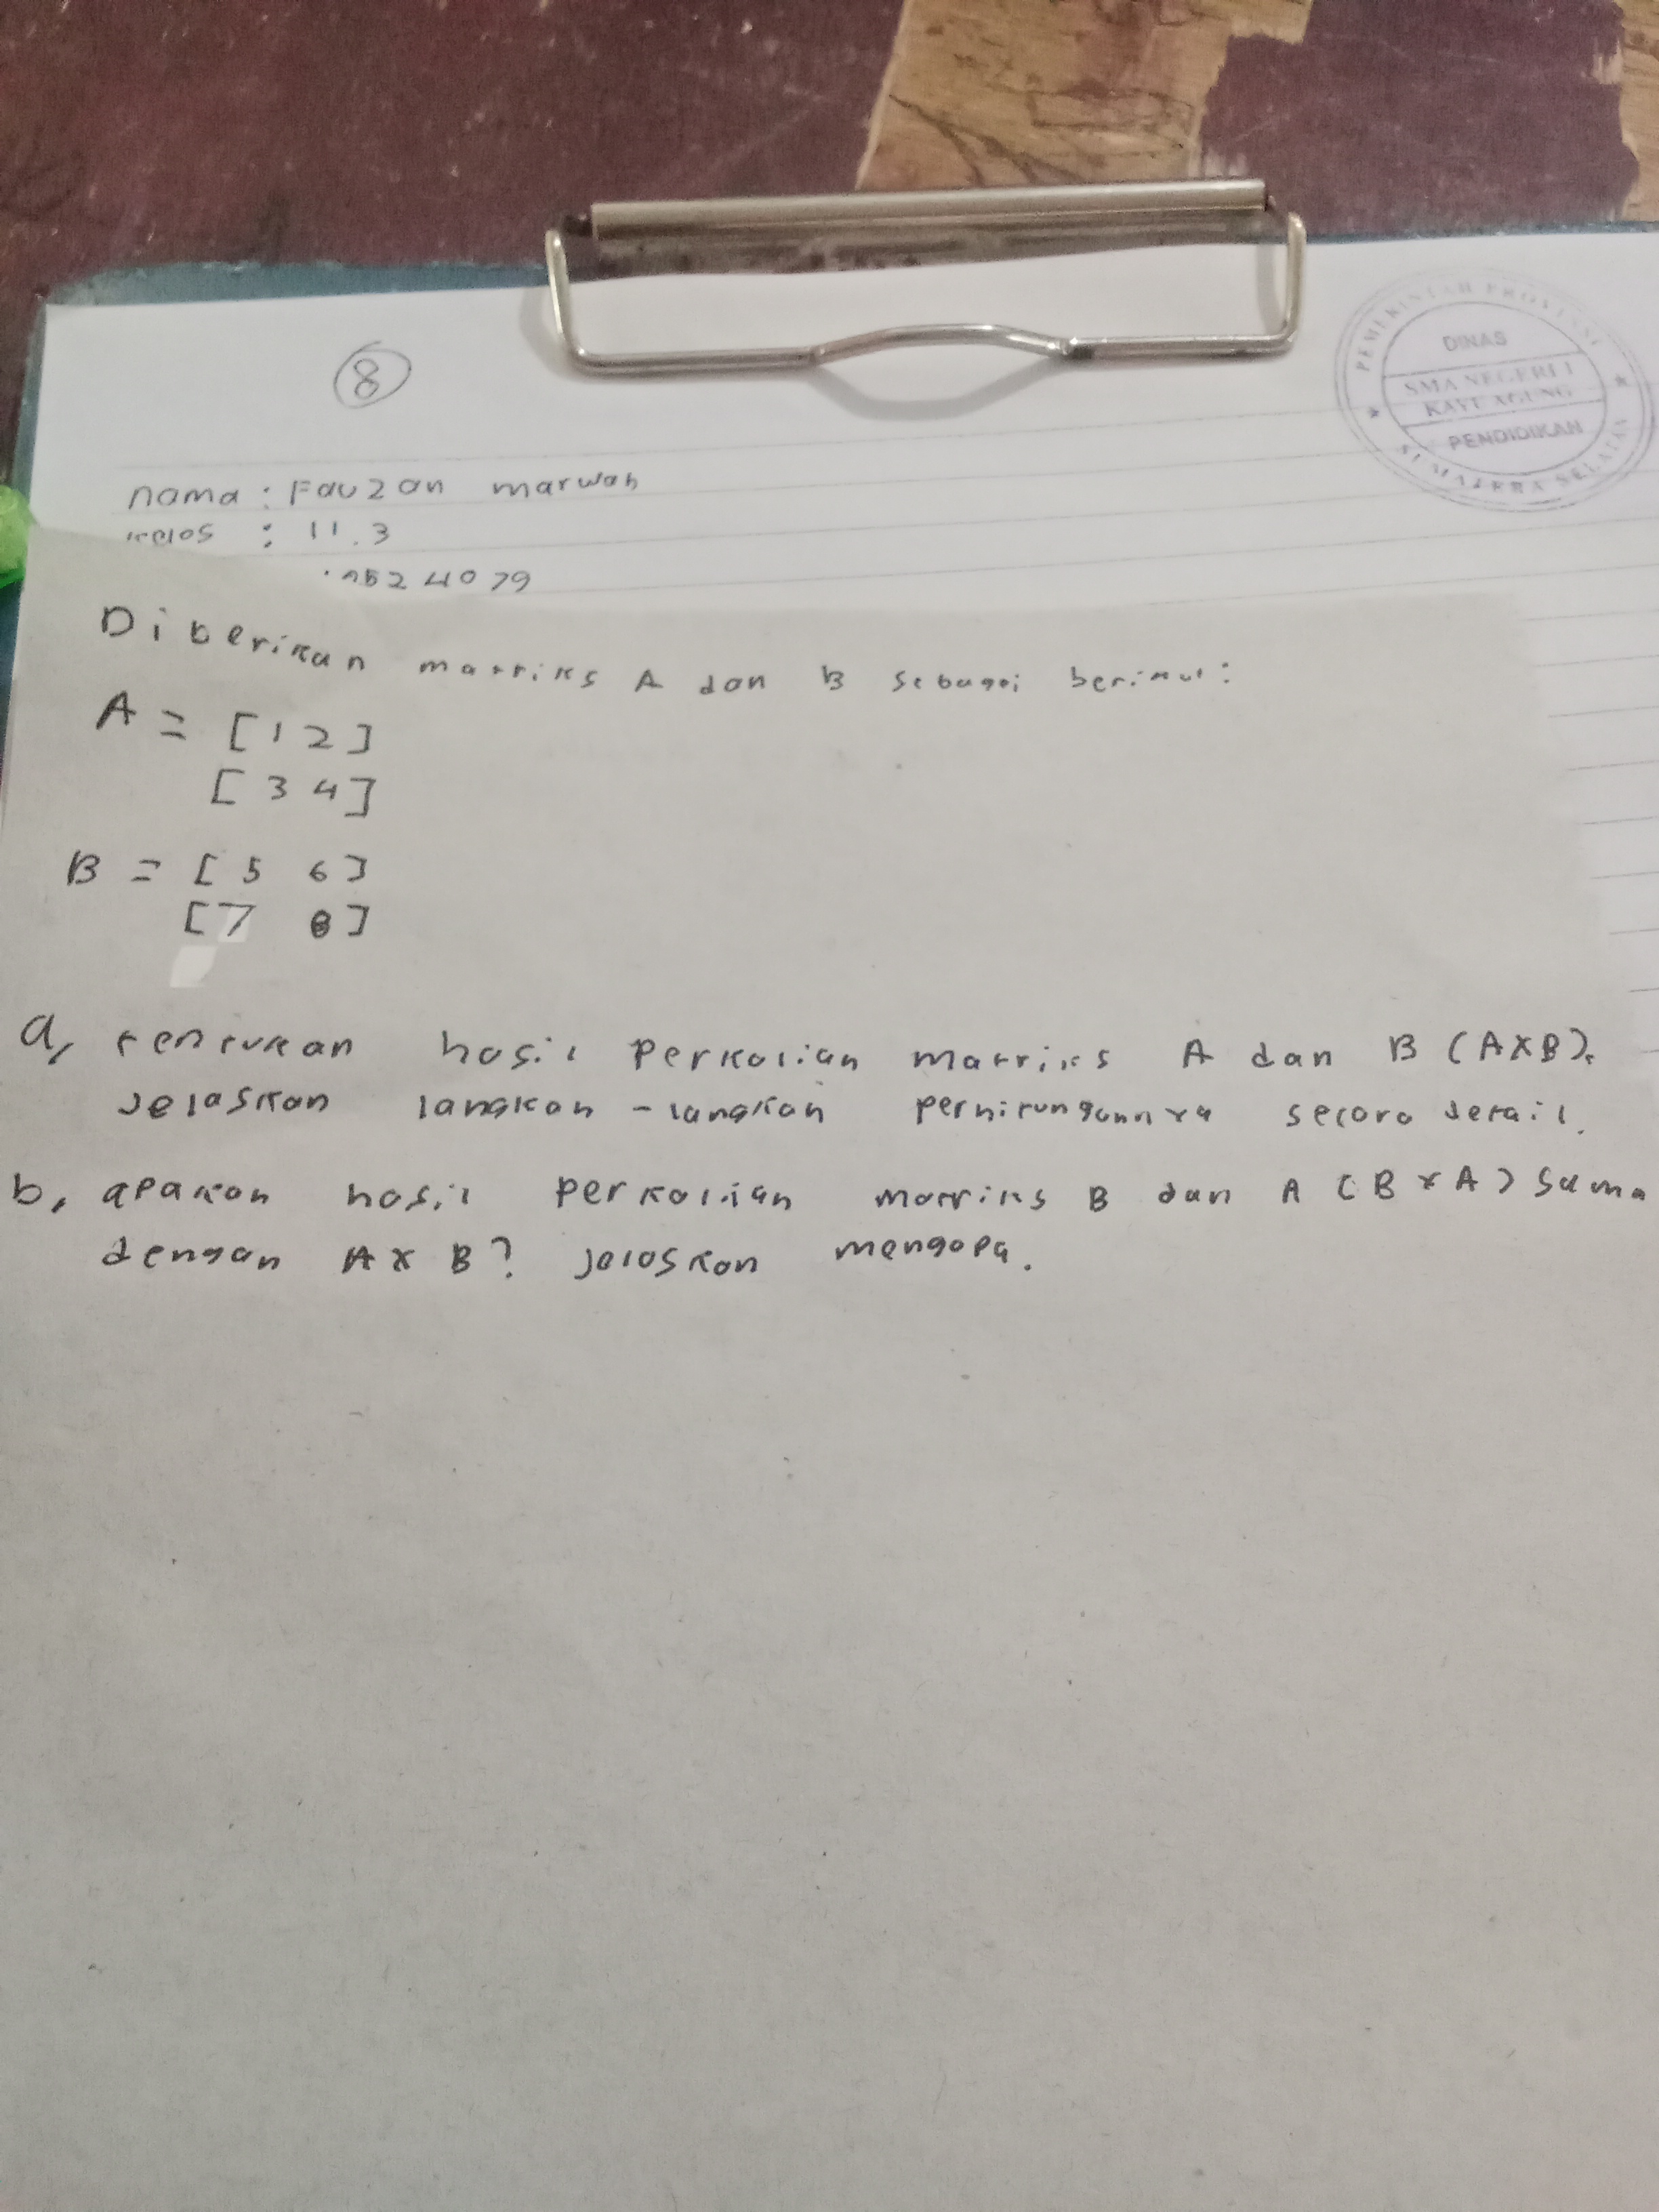 8
PEMERINTAH PROVINSI
DINAS
SMA NEGERI 1
KAYU AGUNG
PENDIDIKAN
SUMATERA SELATAN
nama : Fauzan marwah
kelas : 11.3
524079
Diberikan matriks A dan B sebagai berikut:
A = [1 2]
[3 4]
B = [5 6]
[7 8]
a, tentukan hasil perkalian matriks A dan B (AXB).
Jelaskan langkah-langkah perhitungannya secara detail.
b, apakah hasil perkalian matriks B dan A (B x A) sama
dengan A x B? jelaskan mengapa.